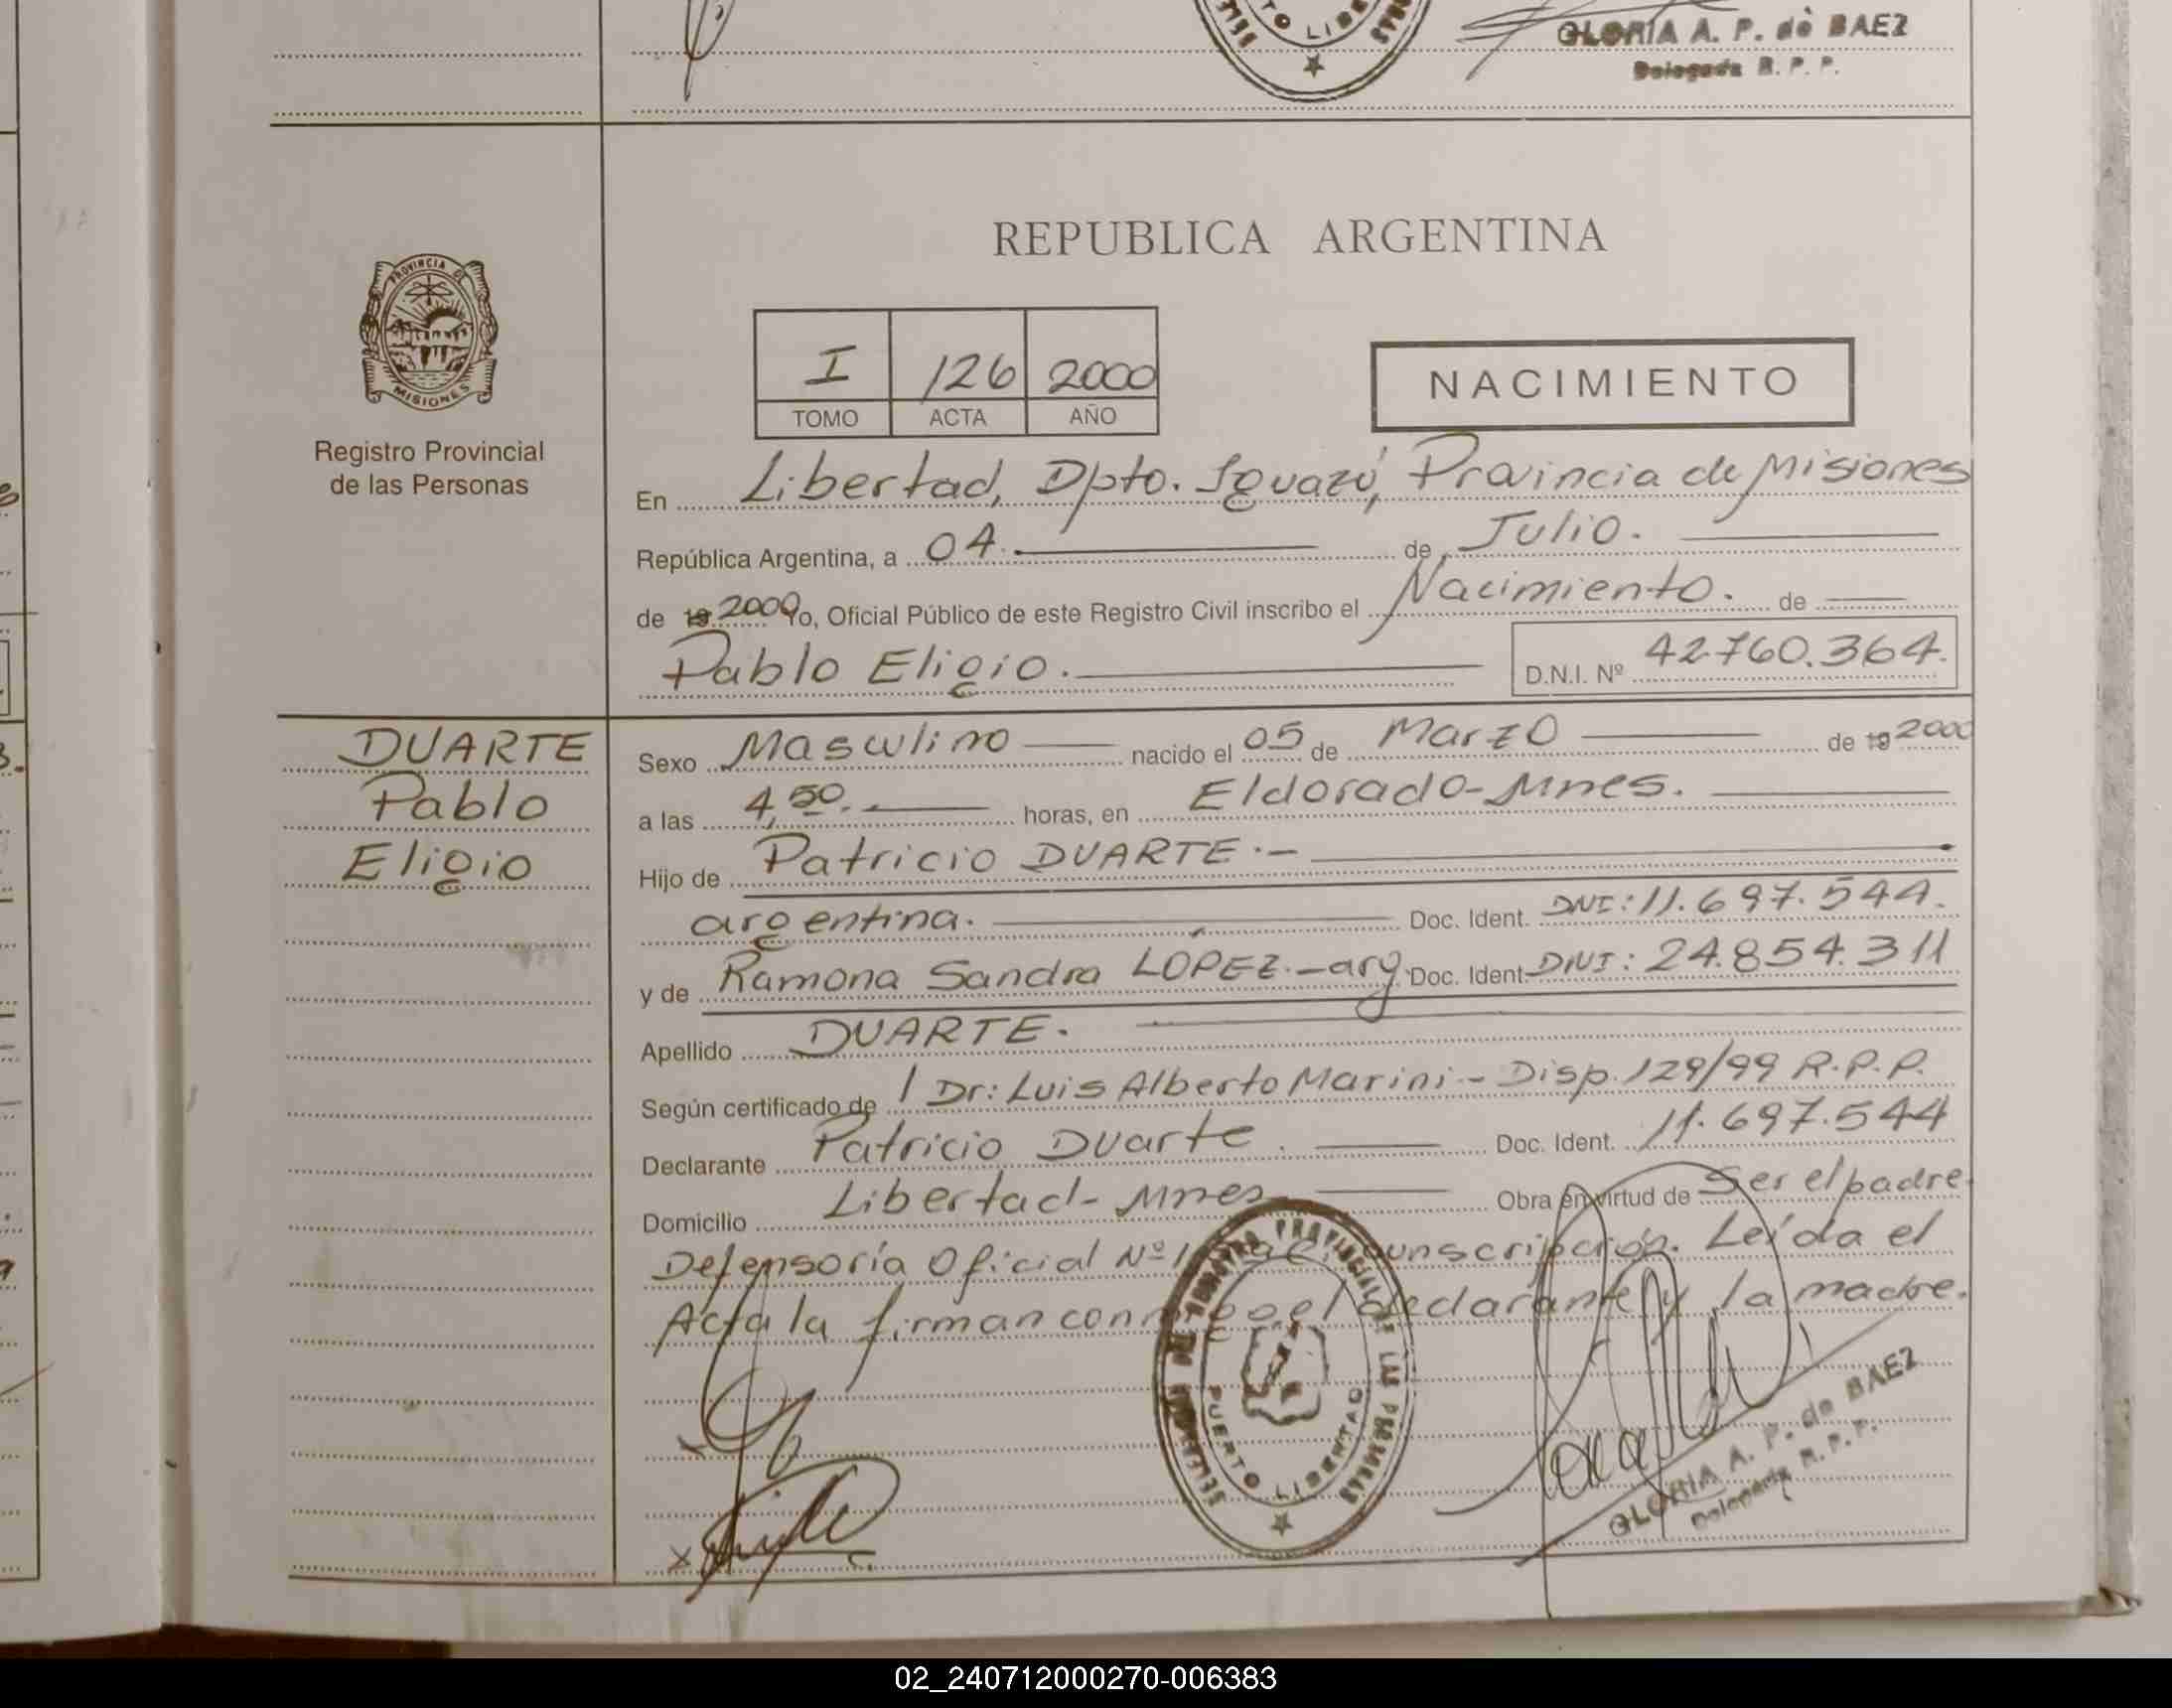 GLORIA A. P. de BAEZ
Delegada R. P. P.
REPUBLICA ARGENTINA
PROVINCIA DE
MISIONES
Registro Provincial
de las Personas
I 126 2000
TOMO ACTA AÑO
NACIMIENTO
En Libertad, Dpto. Iguazú, Provincia de Misiones
República Argentina, a 04. de Julio.
de 19 2000 Yo, Oficial Público de este Registro Civil inscribo el Nacimiento. de
Pablo Eligio. D.N.I. Nº 42.760.364.
DUARTE
Pablo
Eligio
Sexo Masculino nacido el 05 de Marzo de 19 2000
a las 4,50. horas, en Eldorado-Mnes.
Hijo de Patricio DUARTE.-
argentina. Doc. Ident. DNI: 11.697.544.
y de Ramona Sandra LÓPEZ.-arg. Doc. Ident. DNI: 24.854.311
Apellido DUARTE.
Según certificado de / Dr: Luis Alberto Marini.- Disp. 129/99 R.P.P.
Declarante Patricio Duarte. Doc. Ident. 11.697.544
Domicilio Libertad- Mnes Obra en virtud de Ser el padre.
Defensoría Oficial Nº 1 Leída el
Acta la firman conmigo el declarante y la madre.
PUERTO LIBERTAD
GLORIA A. P. de BAEZ
Delegada R. P. P.
02_240712000270-006383